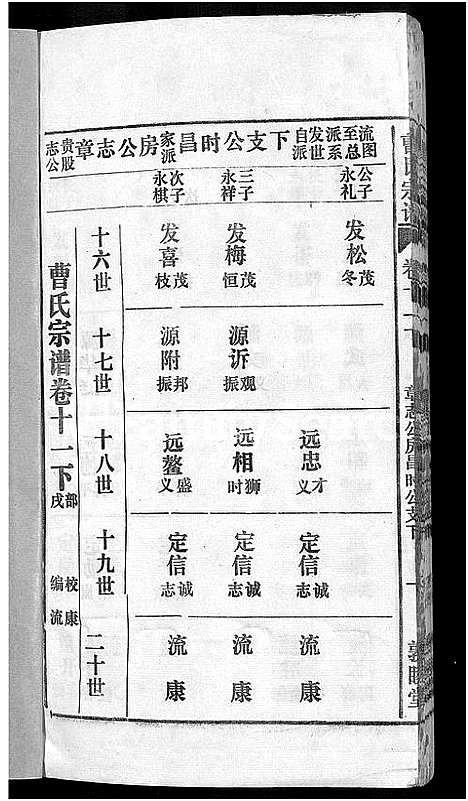 志贵股章志公房家昌时公支下自发派至流
公 派 派世系总图
永棋 次子
永祥 三子
永礼 公子
十六世 发喜 枝茂 发梅 恒茂 发松 冬茂
十七世 源附 振邦 源诉 振观
十八世 远鳌 义盛 远相 时狮 远忠 义才
十九世 定信 志诚 定信 志诚 定信 志诚
二十世 流康 流康 流康
曹氏宗谱卷十一下 戌部 编校 流康
曹氏宗谱
章志公房昌时公支下
一
敦睦堂